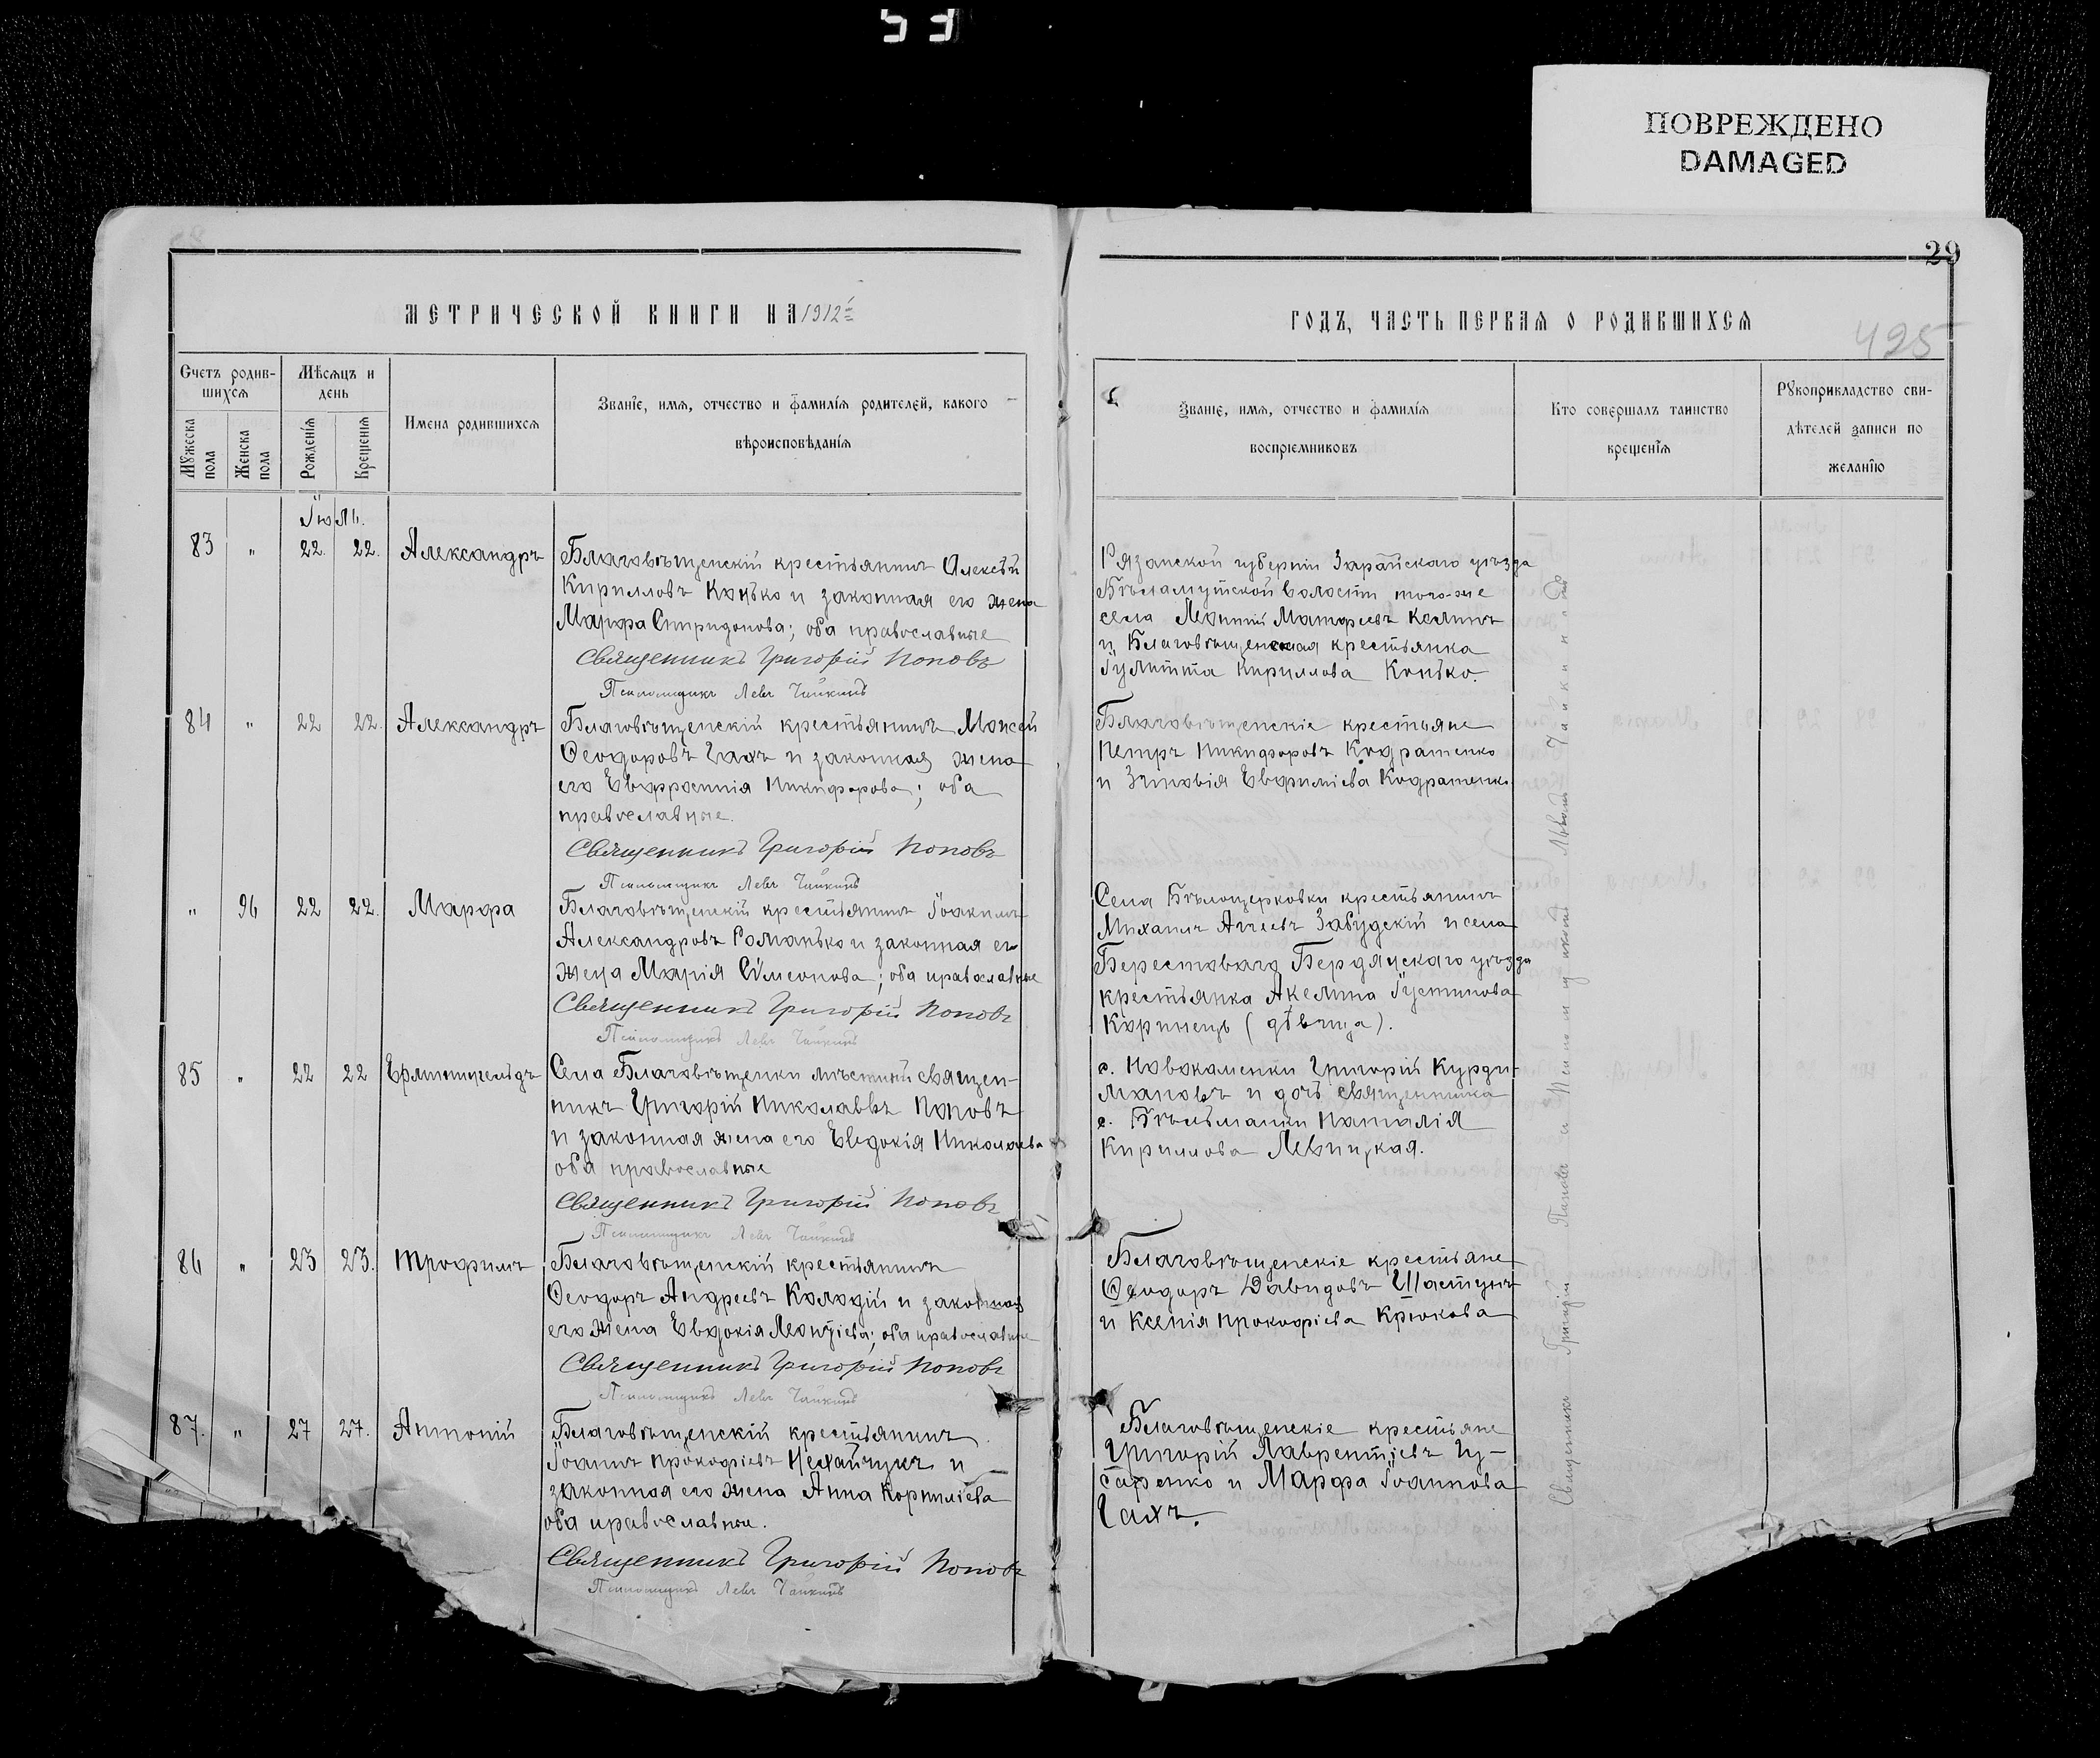 ПОВРЕЖДЕНО
DAMAGED
29
МЕТРИЧЕСКОЙ КНИГИ НА 1912й
ГОДЪ, ЧАСТЬ ПЕРВАЯ О РОДИВШИХСЯ
425
Счетъ родив-
шихся
Мужеска пола
Женска пола
Мѣсяцъ и
день
Рожденія
Крещенія
Имена родившихся
Званіе, имя, отчество и фамилія родителей, какого
вѣроисповѣданія
Званіе, имя, отчество и фамилія
воспріемниковъ
Кто совершалъ таинство
крещенія
Рукоприкладство сви-
дѣтелей записи по
желанію
Іюль.
83 " 22. 22. Александръ
Благовѣщенскій крестьянинъ Алексѣй
Кирилловъ Конько и законная его жена
Марфа Спиридонова; оба православные
Священникъ Григорій Поповъ
Псаломщикъ Левъ Чайкинъ
Рязанской губерніи Зарайскаго уѣзда
Бѣломутской волости того-же
села Матфіевъ
и Благовѣщенская крестьянка
Іулитта Кириллова Конько.
84 " 22 22. Александръ
Благовѣщенскій крестьянинъ Моисей
Ѳеодоровъ Гахъ и законная жена
его Евфросинія Никифорова; оба
православные.
Священникъ Григорій Поповъ
Псаломщикъ Левъ Чайкинъ
Благовѣщенскіе крестьяне
Петръ Никифоровъ Кодратенко
и Зиновія Евфиміева Кодратенко
" 96 22 22. Марфа
Благовѣщенскій крестьянинъ Іоакимъ
Александровъ Романько и законная его
жена Марія Симеонова; оба православные
Священникъ Григорій Поповъ
Псаломщикъ Левъ Чайкинъ
Села Бѣлоцерковки крестьянинъ
Михаилъ Забудскій и села
Берестоваго Бердянскаго уѣзда
крестьянка Акелина Іустинова
Коринець (дѣвица).
85 " 22 22 Ермингельдъ
Села Благовѣщенки мѣстный священ-
никъ Григорій Николаевъ Поповъ
и законная жена его Евдокія Николаева
оба православные
Священникъ Григорій Поповъ
Псаломщикъ Левъ Чайкинъ
с. Новокаменки Григорій Курди-
мановъ и дочь священника
с. Бѣльманки Наталія
Кириллова Левицкая.
86 " 23 23. Трофимъ
Благовѣщенскій крестьянинъ
Ѳеодоръ Андреевъ Колодій и законная
его жена Евдокія Леонтіева; оба православные
Священникъ Григорій Поповъ
Псаломщикъ Левъ Чайкинъ
Благовѣщенскіе крестьяне
Ѳеодоръ Давидовъ Шастунъ
и Ксенія Прокофіева Крюкова
87. " 27 27. Антоній
Благовѣщенскій крестьянинъ
Іоаннъ Прокофіевъ Нехайчукъ и
законная его жена Анна Корниліева
оба православные.
Священникъ Григорій Поповъ
Псаломщикъ Левъ Чайкинъ
Благовѣщенскіе крестьяне
Григорій Лаврентіевъ Гу-
саренко и Марфа Іоаннова
Гахъ.
Священникъ Григорій Поповъ и Псаломщикъ Левъ Чайкинъ